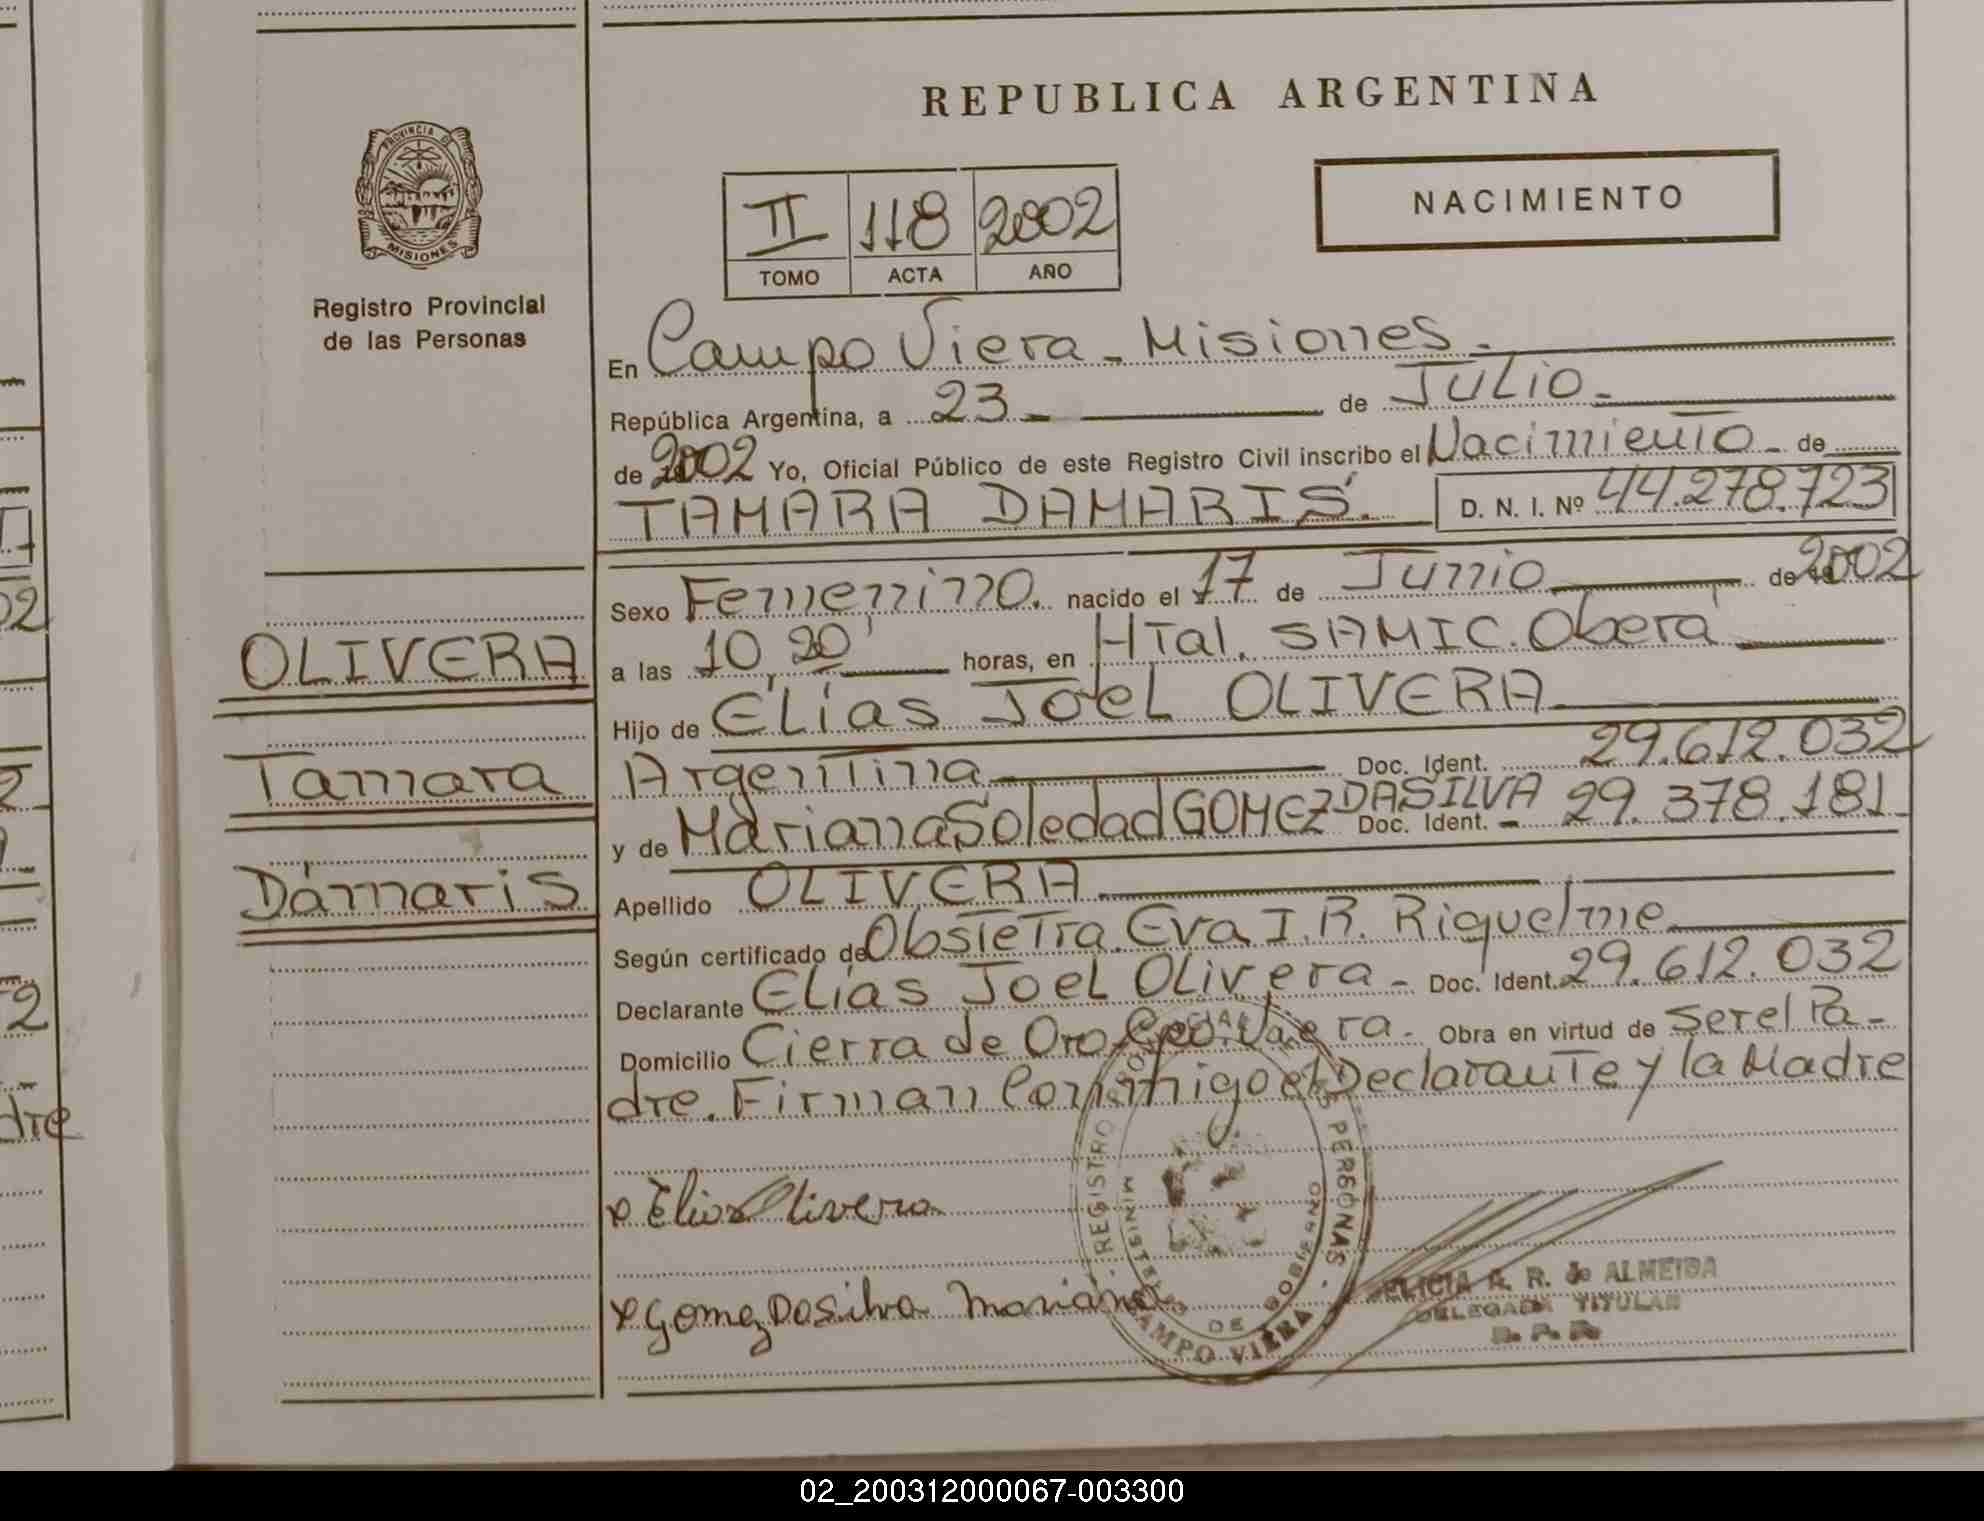 REPUBLICA ARGENTINA
PROVINCIA DE
MISIONES
Registro Provincial
de las Personas
NACIMIENTO
II 118 2002
TOMO ACTA AÑO
En Campo Viera - Misiones.
República Argentina, a 23 de JULIO.
de 2002 Yo, Oficial Público de este Registro Civil inscribo el Nacimiento de
TAMARA DAMARIS. D. N. I. Nº 44.278.723
Sexo Femenino. nacido el 17 de Junio de 2002
a las 10,20' horas, en Htal. SAMIC. Oberá
Hijo de Elías Joel OLIVERA
Argentina Doc. Ident. 29.612.032
y de Mariana Soledad GOMEZ DASILVA Doc. Ident. - 29.378.181
Apellido OLIVERA
Según certificado de Obstetra. Eva I. R. Riquelme
Declarante Elías Joel Olivera - Doc. Ident. 29.612.032
Domicilio Cierra de Oro Cpo. Viera. Obra en virtud de Ser el Pa-
dre. Firman Conmigo el Declarante y la Madre
OLIVERA
Tamara
Dámaris
Elias Olivera
Gomez Da Silva Mariana
REGISTRO PERSONAS
MINISTERIO DE GOBIERNO
CAMPO VIERA
ELICIA A. R. de ALMEIDA
DELEGADA TITULAR
R. P. P.
dre
02_200312000067-003300